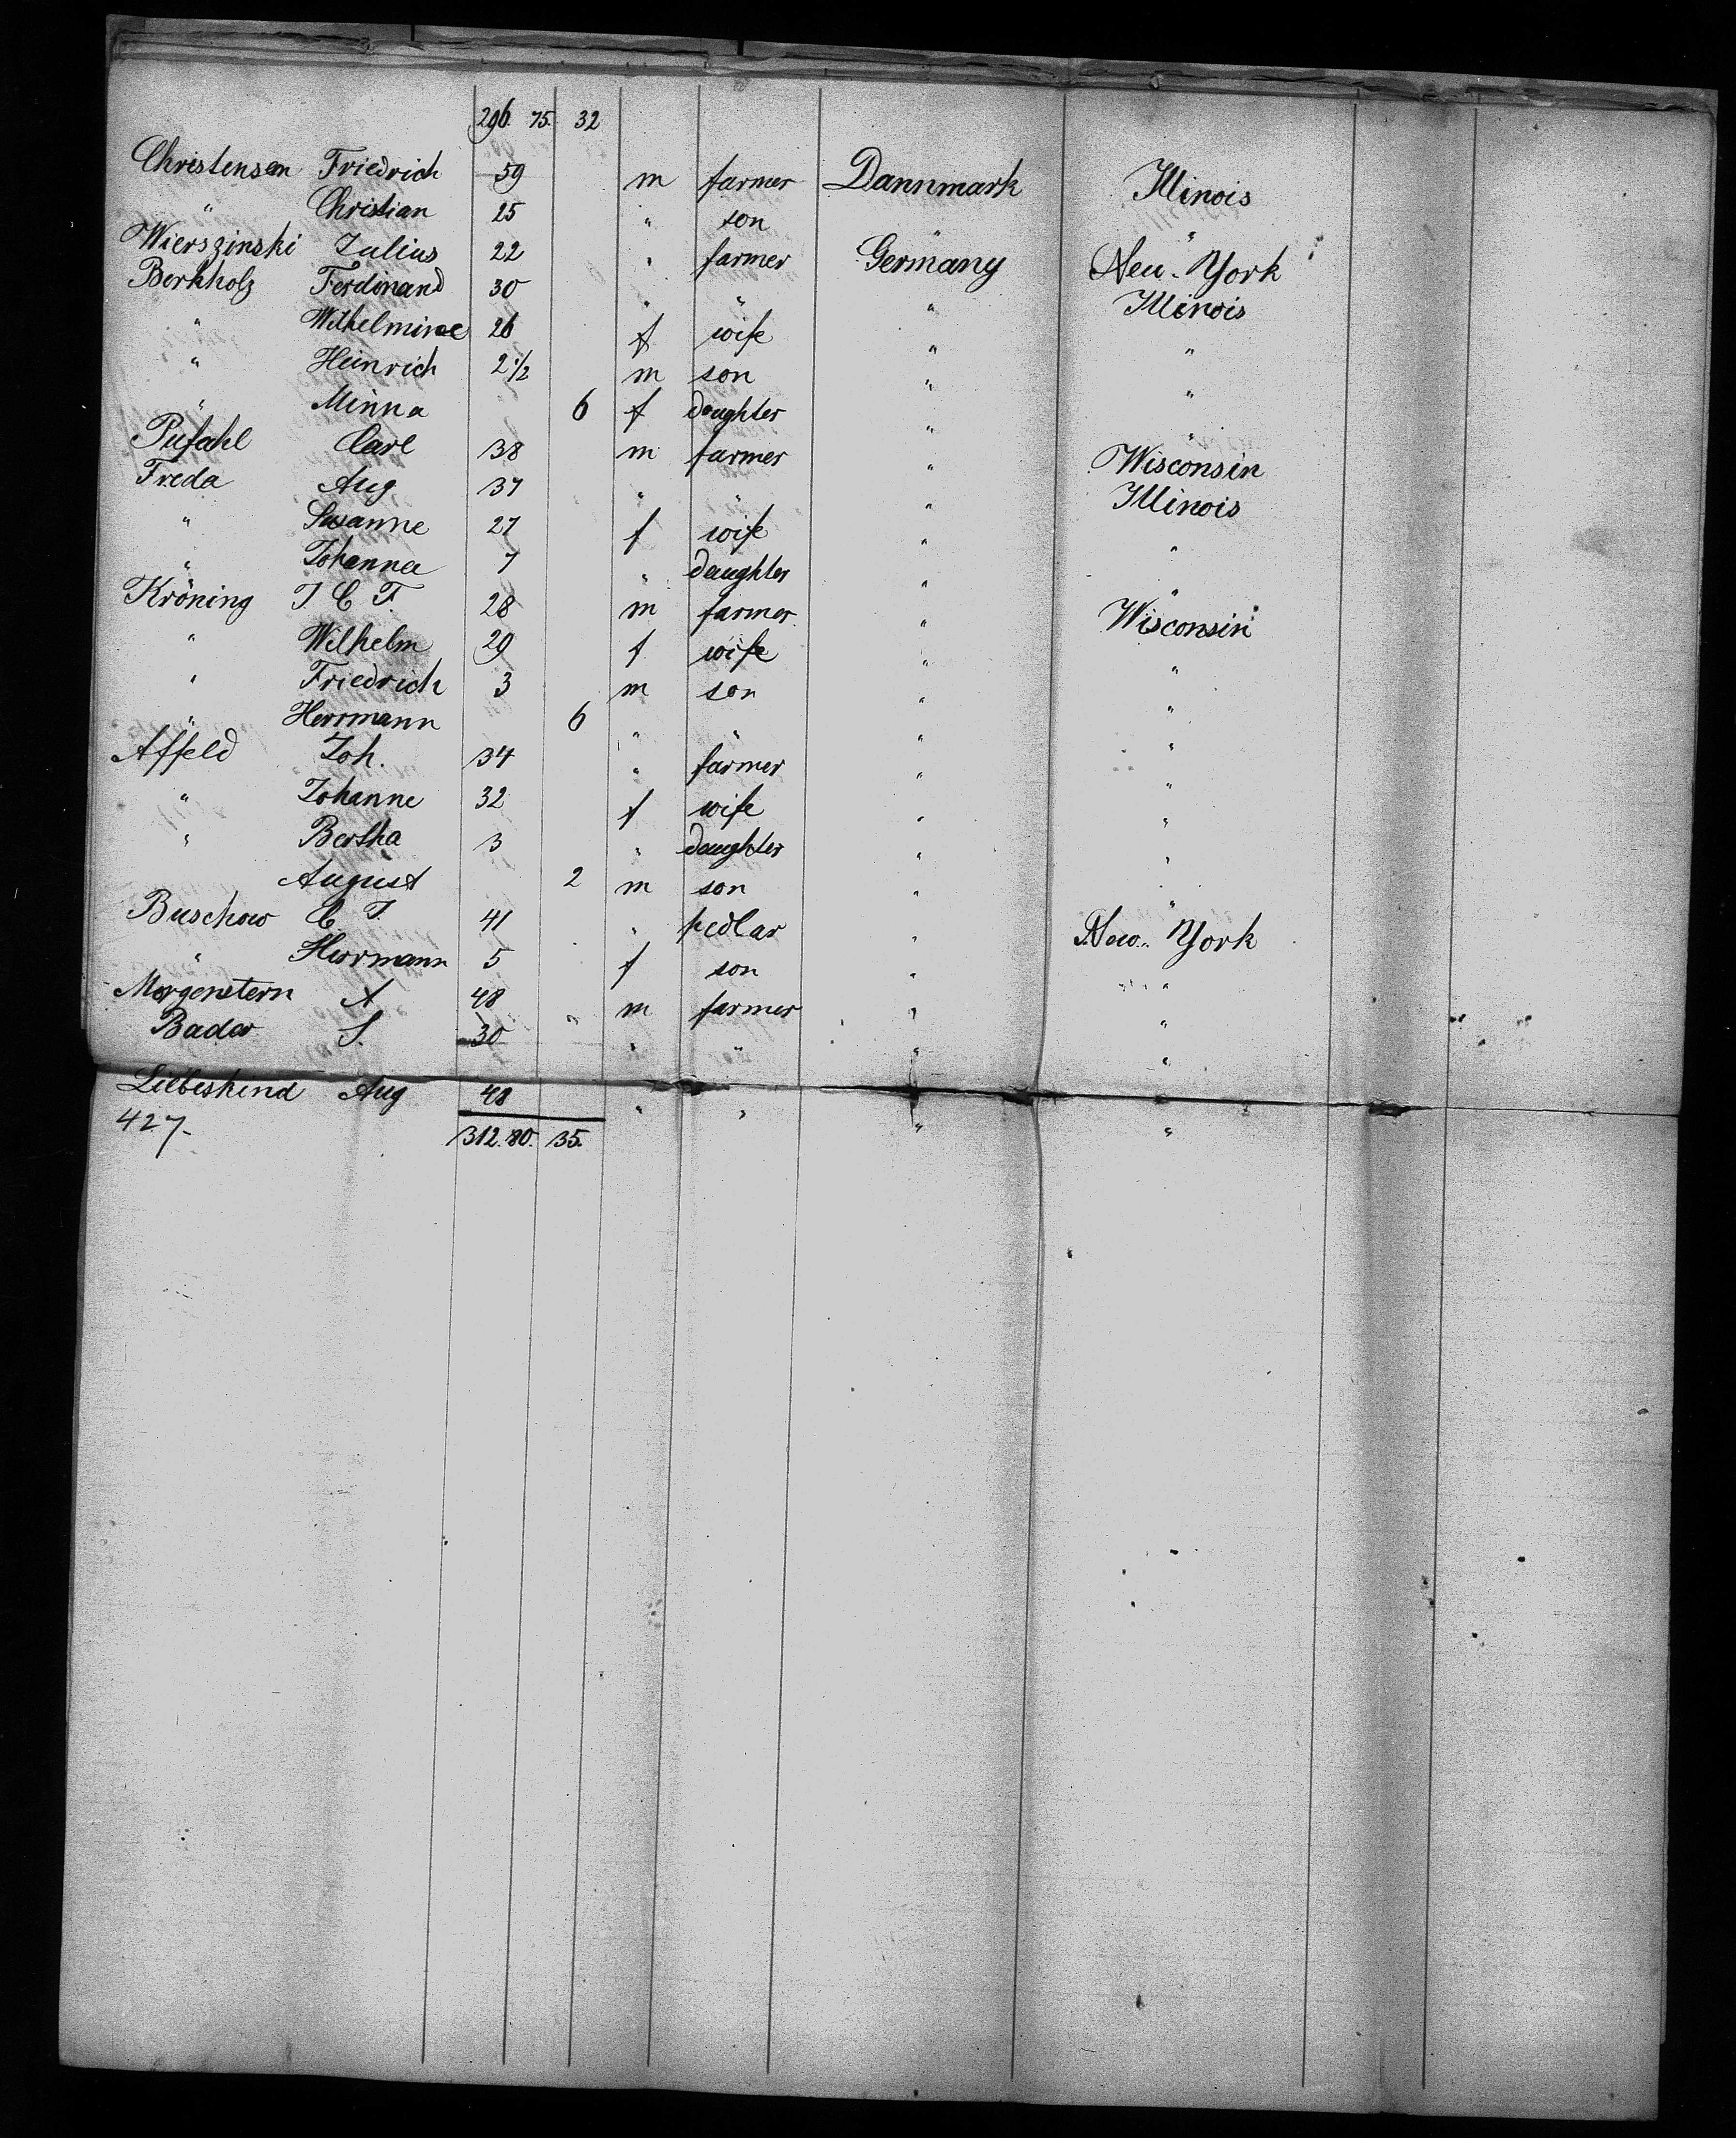 296. 75. 32
Christensen Friedrich 59 m farmer Dannmark Illinois
" Christian 25 " son " "
Wierszinski Julius 22 " farmer Germany Neu-York
Berkholz Ferdinand 30 " " " Illinois
" Wilhelmine 26 f wife " "
" Heinrich 2 1/2 m son " "
" Minna 6 f daughter " "
Pufahl Carl 38 m farmer " Wisconsin
Freda Aug 37 " " " Illinois
" Susanne 27 f wife " "
" Johanna 7 " daughter " "
Kröning J. C. F. 28 m farmer " Wisconsin
" Wilhelm 29 f wife " "
" Friedrich 3 m son " "
" Herrmann 6 " " " "
Affeld Joh. 34 " farmer " "
" Johanne 32 f wife " "
" Bertha 3 " daughter " "
August 2 m son " "
Buschow C. J. 41 " pedlar " New-York
" Herrmann 5 f son " "
Morgenstern A 48 " m farmer " "
Bader S. 30 " " " "
Liebeskind Aug 48 " " " "
427. 312. 80. 35.